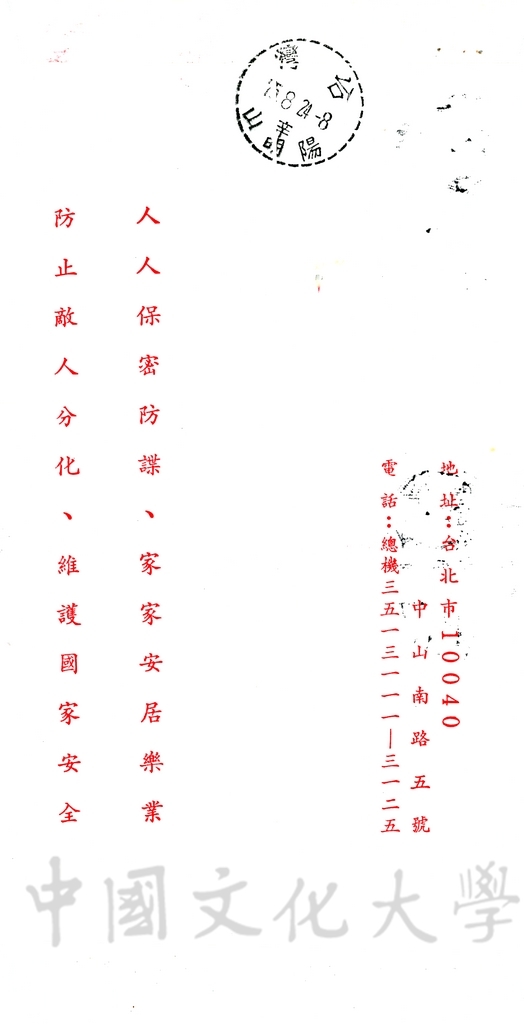 台灣
75.8.24-8
辛
陽明山
地址：台北市10040
中山南路五號
電話：總機三五一三一一一—三一二五
人人保密防諜、家家安居樂業
防止敵人分化、維護國家安全
中國文化大學